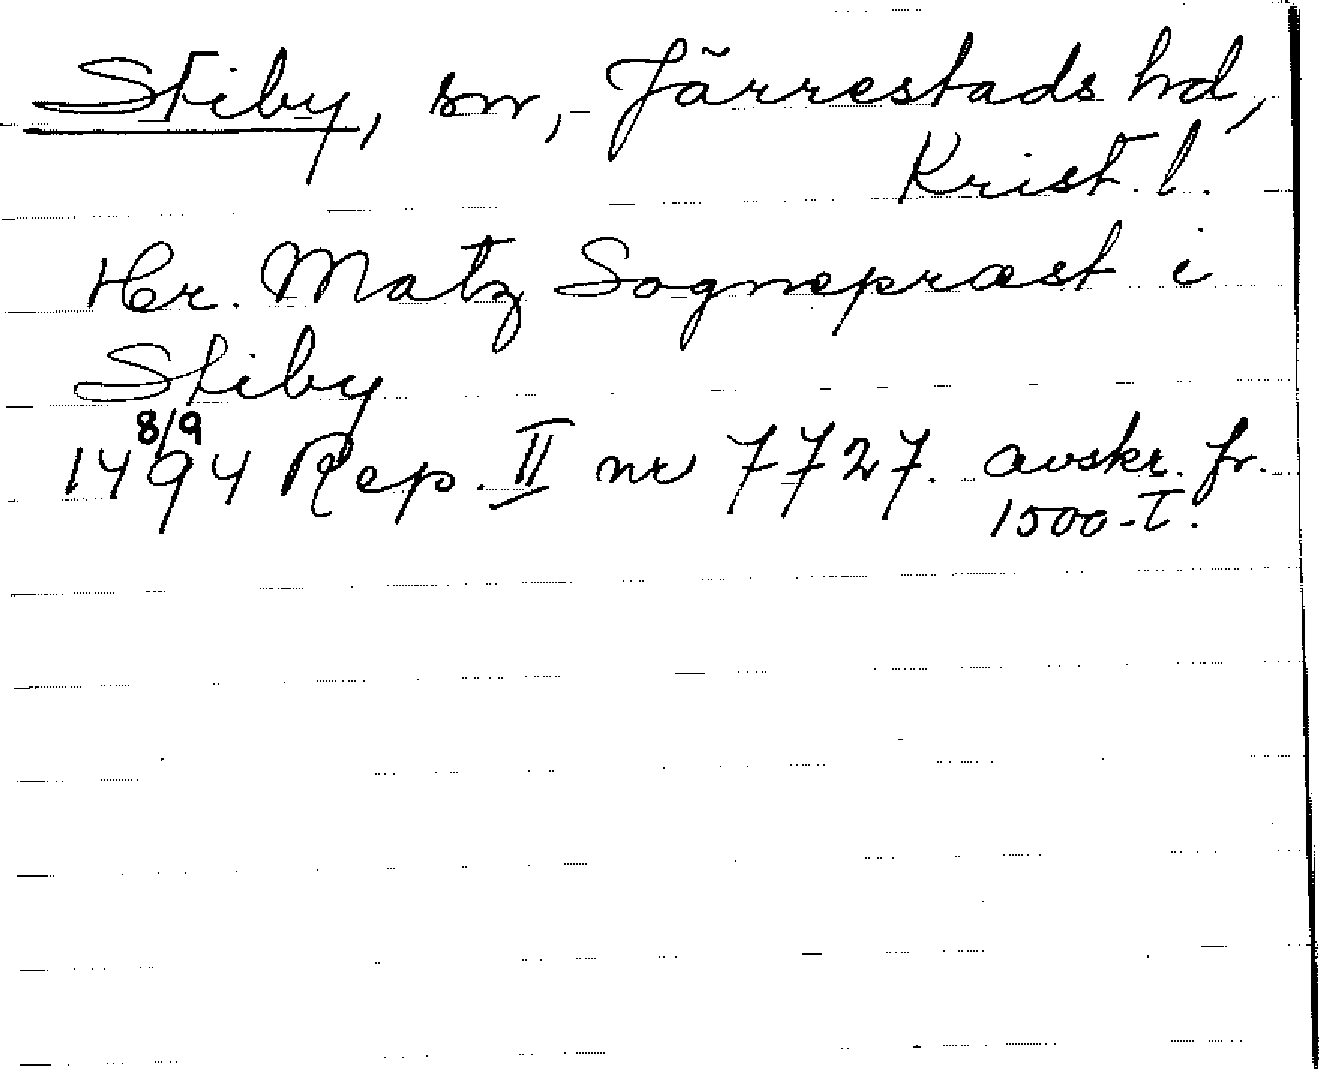 Stiby, sn, Järrestads hd,
Krist. l.
Her. Matz Sognepræst i
Stiby
8/9
1494 Rep. II nr 7727. avskr. fr.
1500-T.